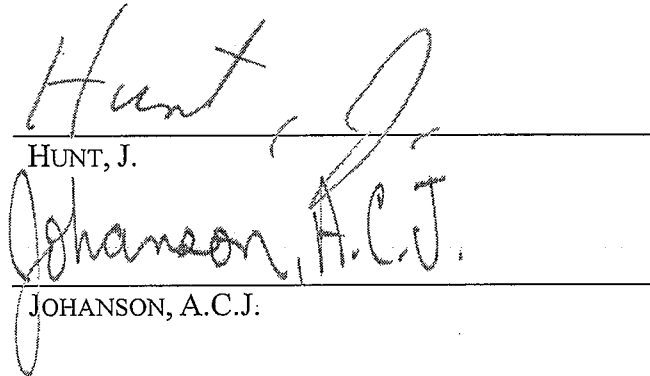 Hunt, J.
HUNT, J.
Johanson, A.C.J.
JOHANSON, A.C.J.